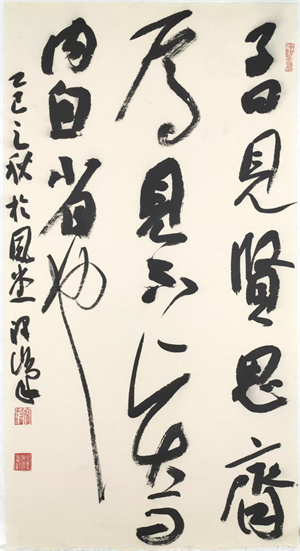 子曰見賢思齊
焉見不賢而
內自省也
乙巳之秋於風堂